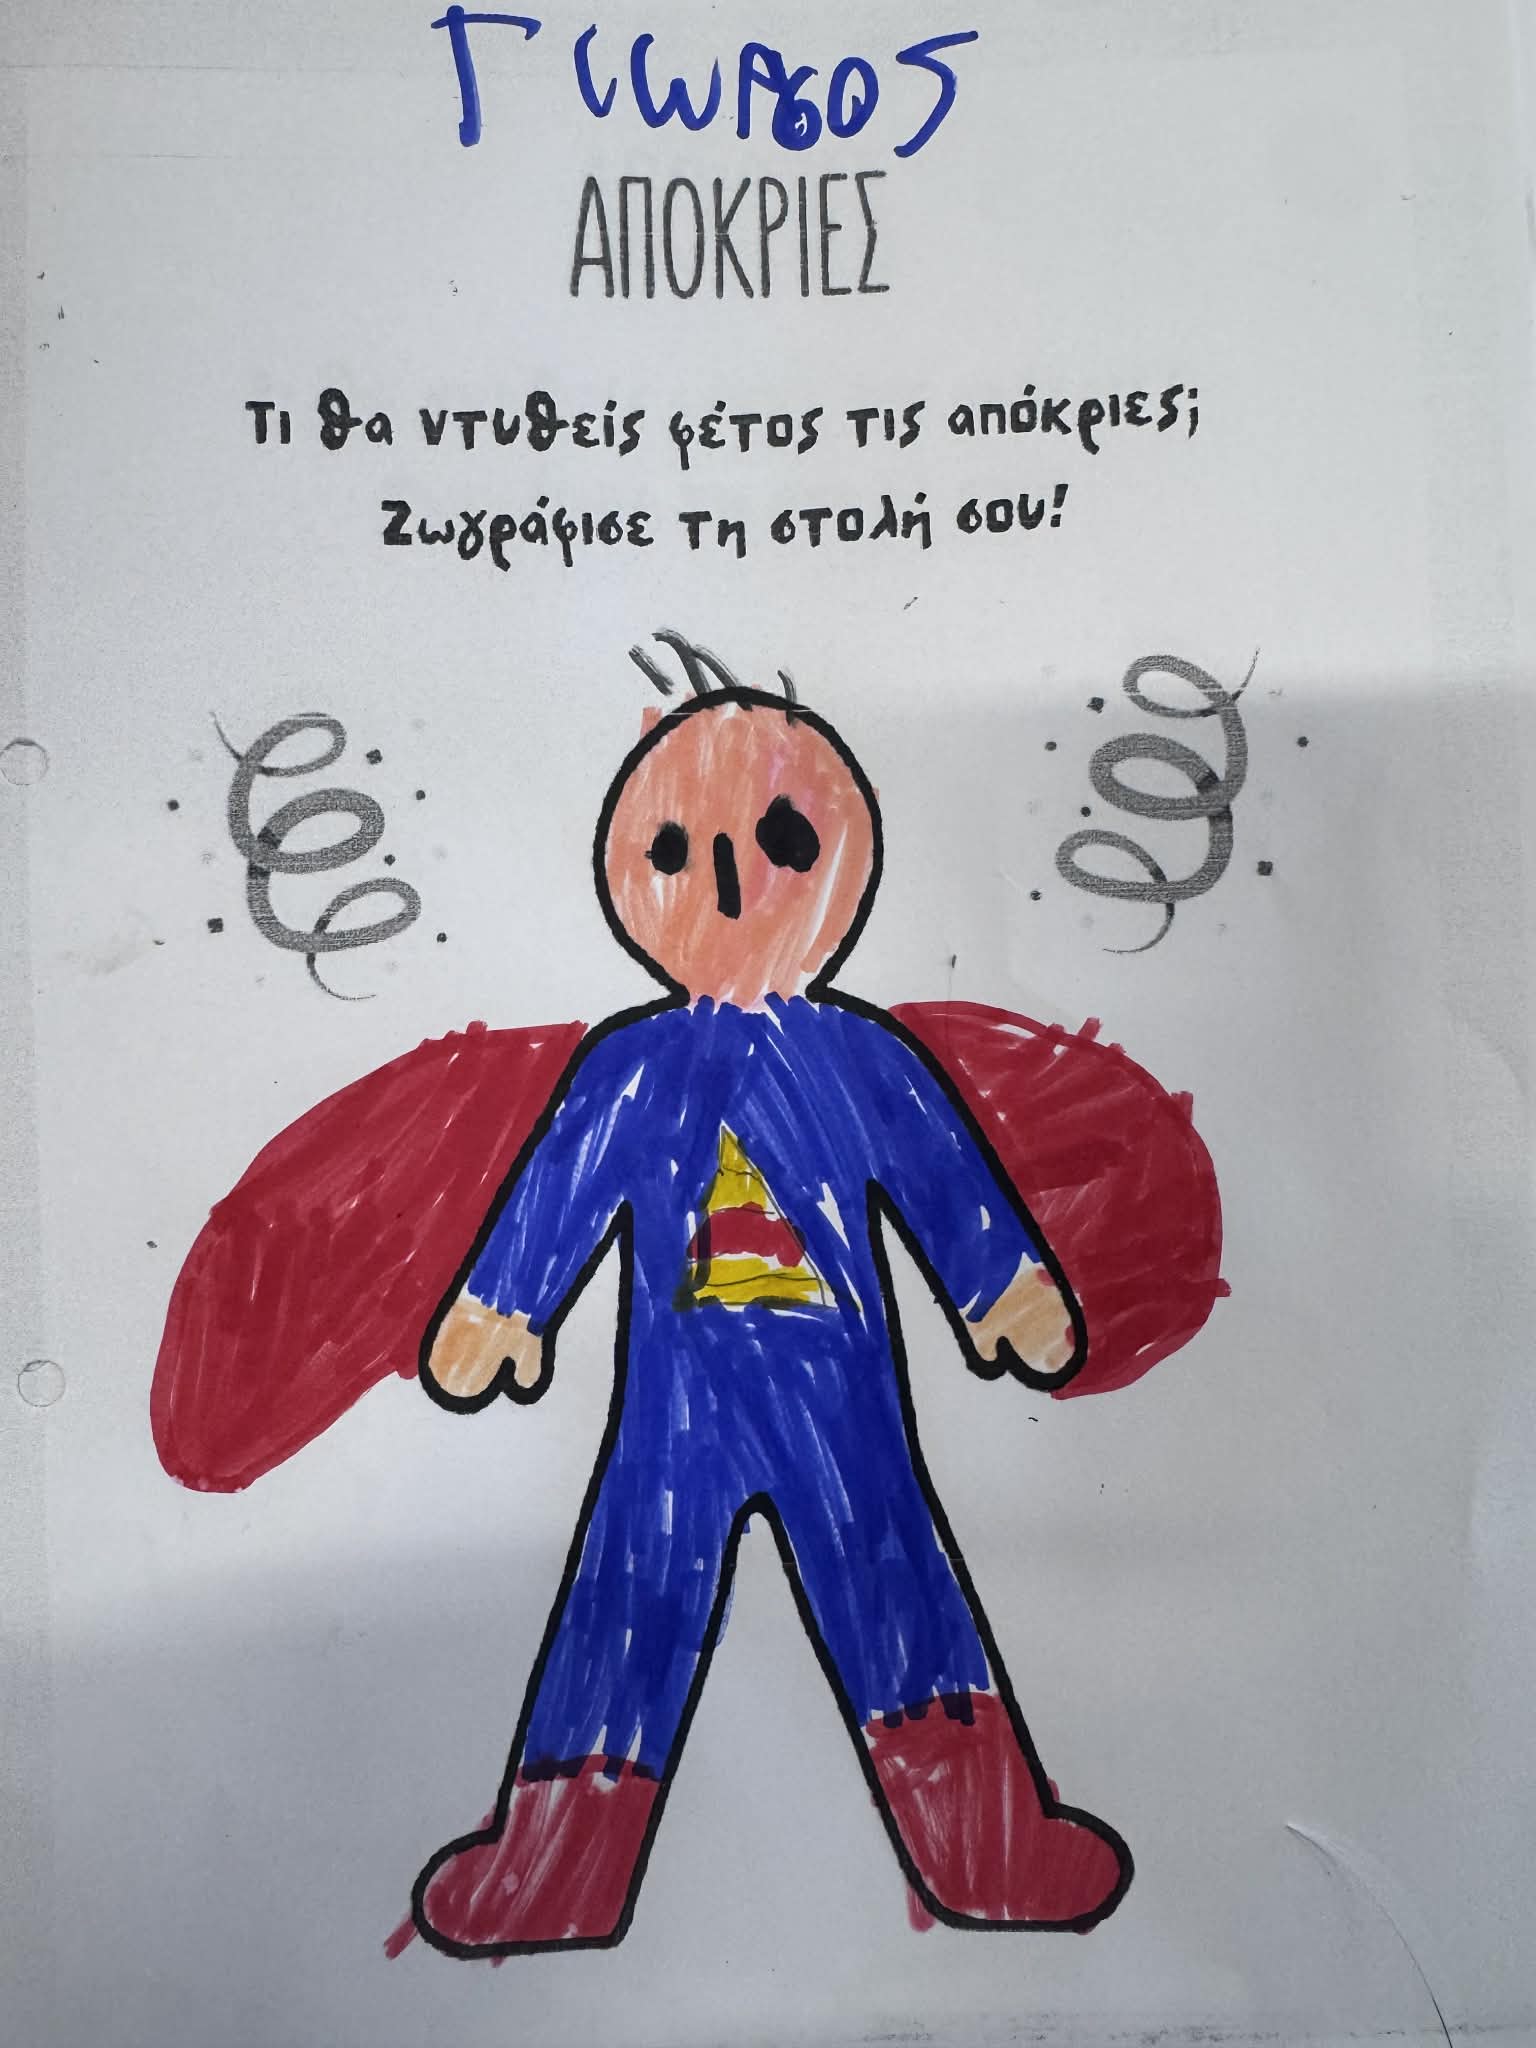 Γιώργος
ΑΠΟΚΡΙΕΣ
Τι θα ντυθείς φέτος τις απόκριες;
Ζωγράφισε τη στολή σου!